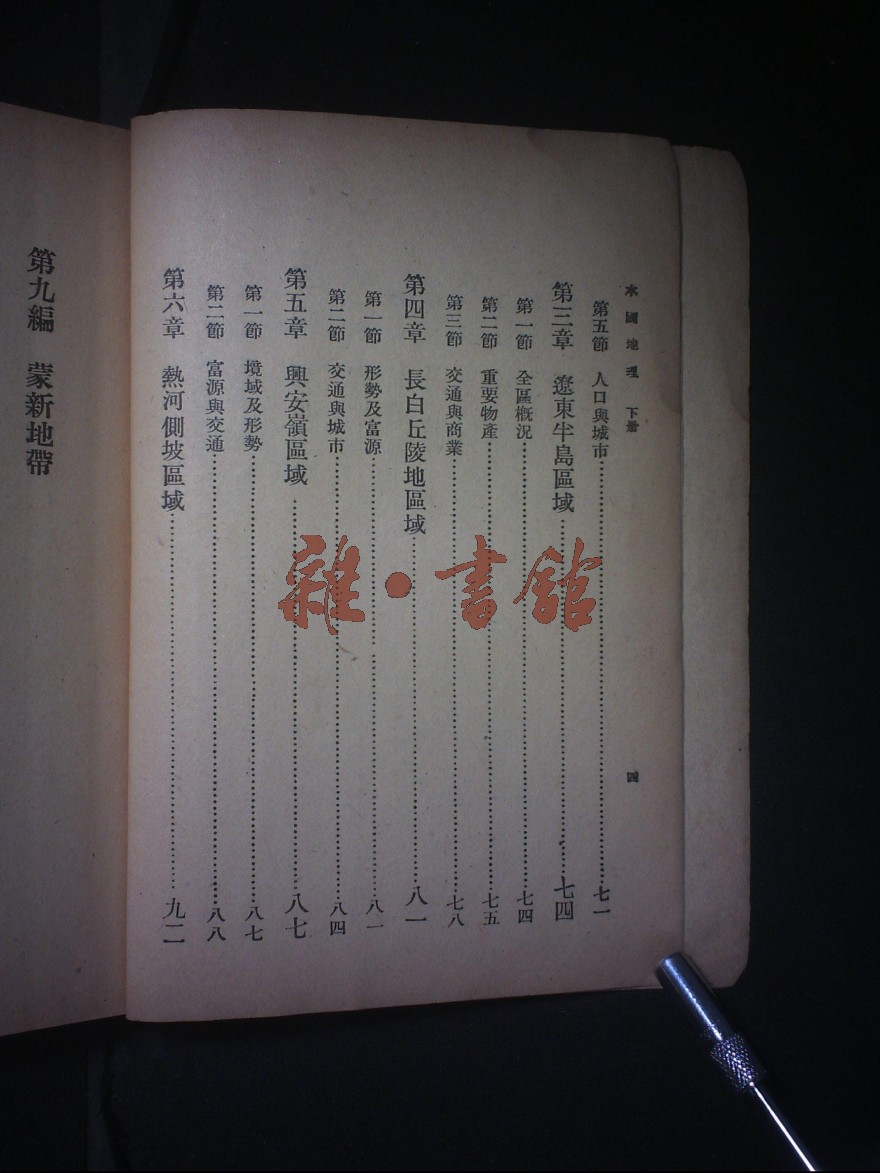 本國地理 下册 四
第五節 人口與城市……七一
第三章 遼東半島區域……七四
第一節 全區槪況……七四
第二節 重要物產……七五
第三節 交通與商業……七八
第四章 長白丘陵地區域……八一
第一節 形勢及富源……八一
第二節 交通與城市……八四
第五章 興安嶺區域……八七
第一節 境域及形勢……八七
第二節 富源與交通……八八
第六章 熱河側坡區域……九二
第九編 蒙新地帶
雜·書館